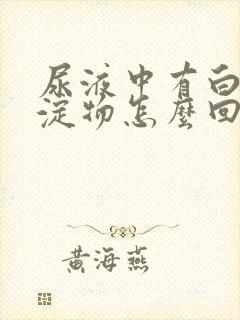 尿液中有白
淀物怎麼回
黄海燕